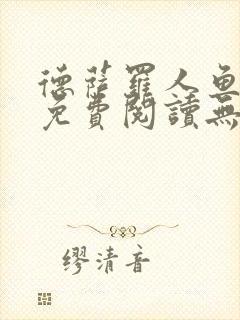 德薩羅人魚
免費閱讀無
繆清音